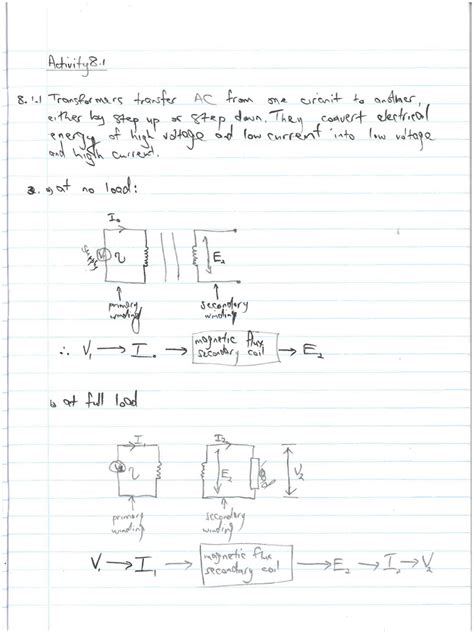 Activity 8.1
8.1.1 Transformers transfer AC from one circuit to another,
either by step up or step down. They convert electrical
energy of high voltage and low current into low voltage
and high current.
2. a) at no load:
I₀
V₁ E₂
primary winding
secondary winding
∴ V₁ → I₀ → magnetic flux secondary coil → E₂
b) at full load
I₁ I₂
E₂ V₂
primary winding
secondary winding
V₁ → I₁ → magnetic flux secondary coil → E₂ → I₂ → V₂